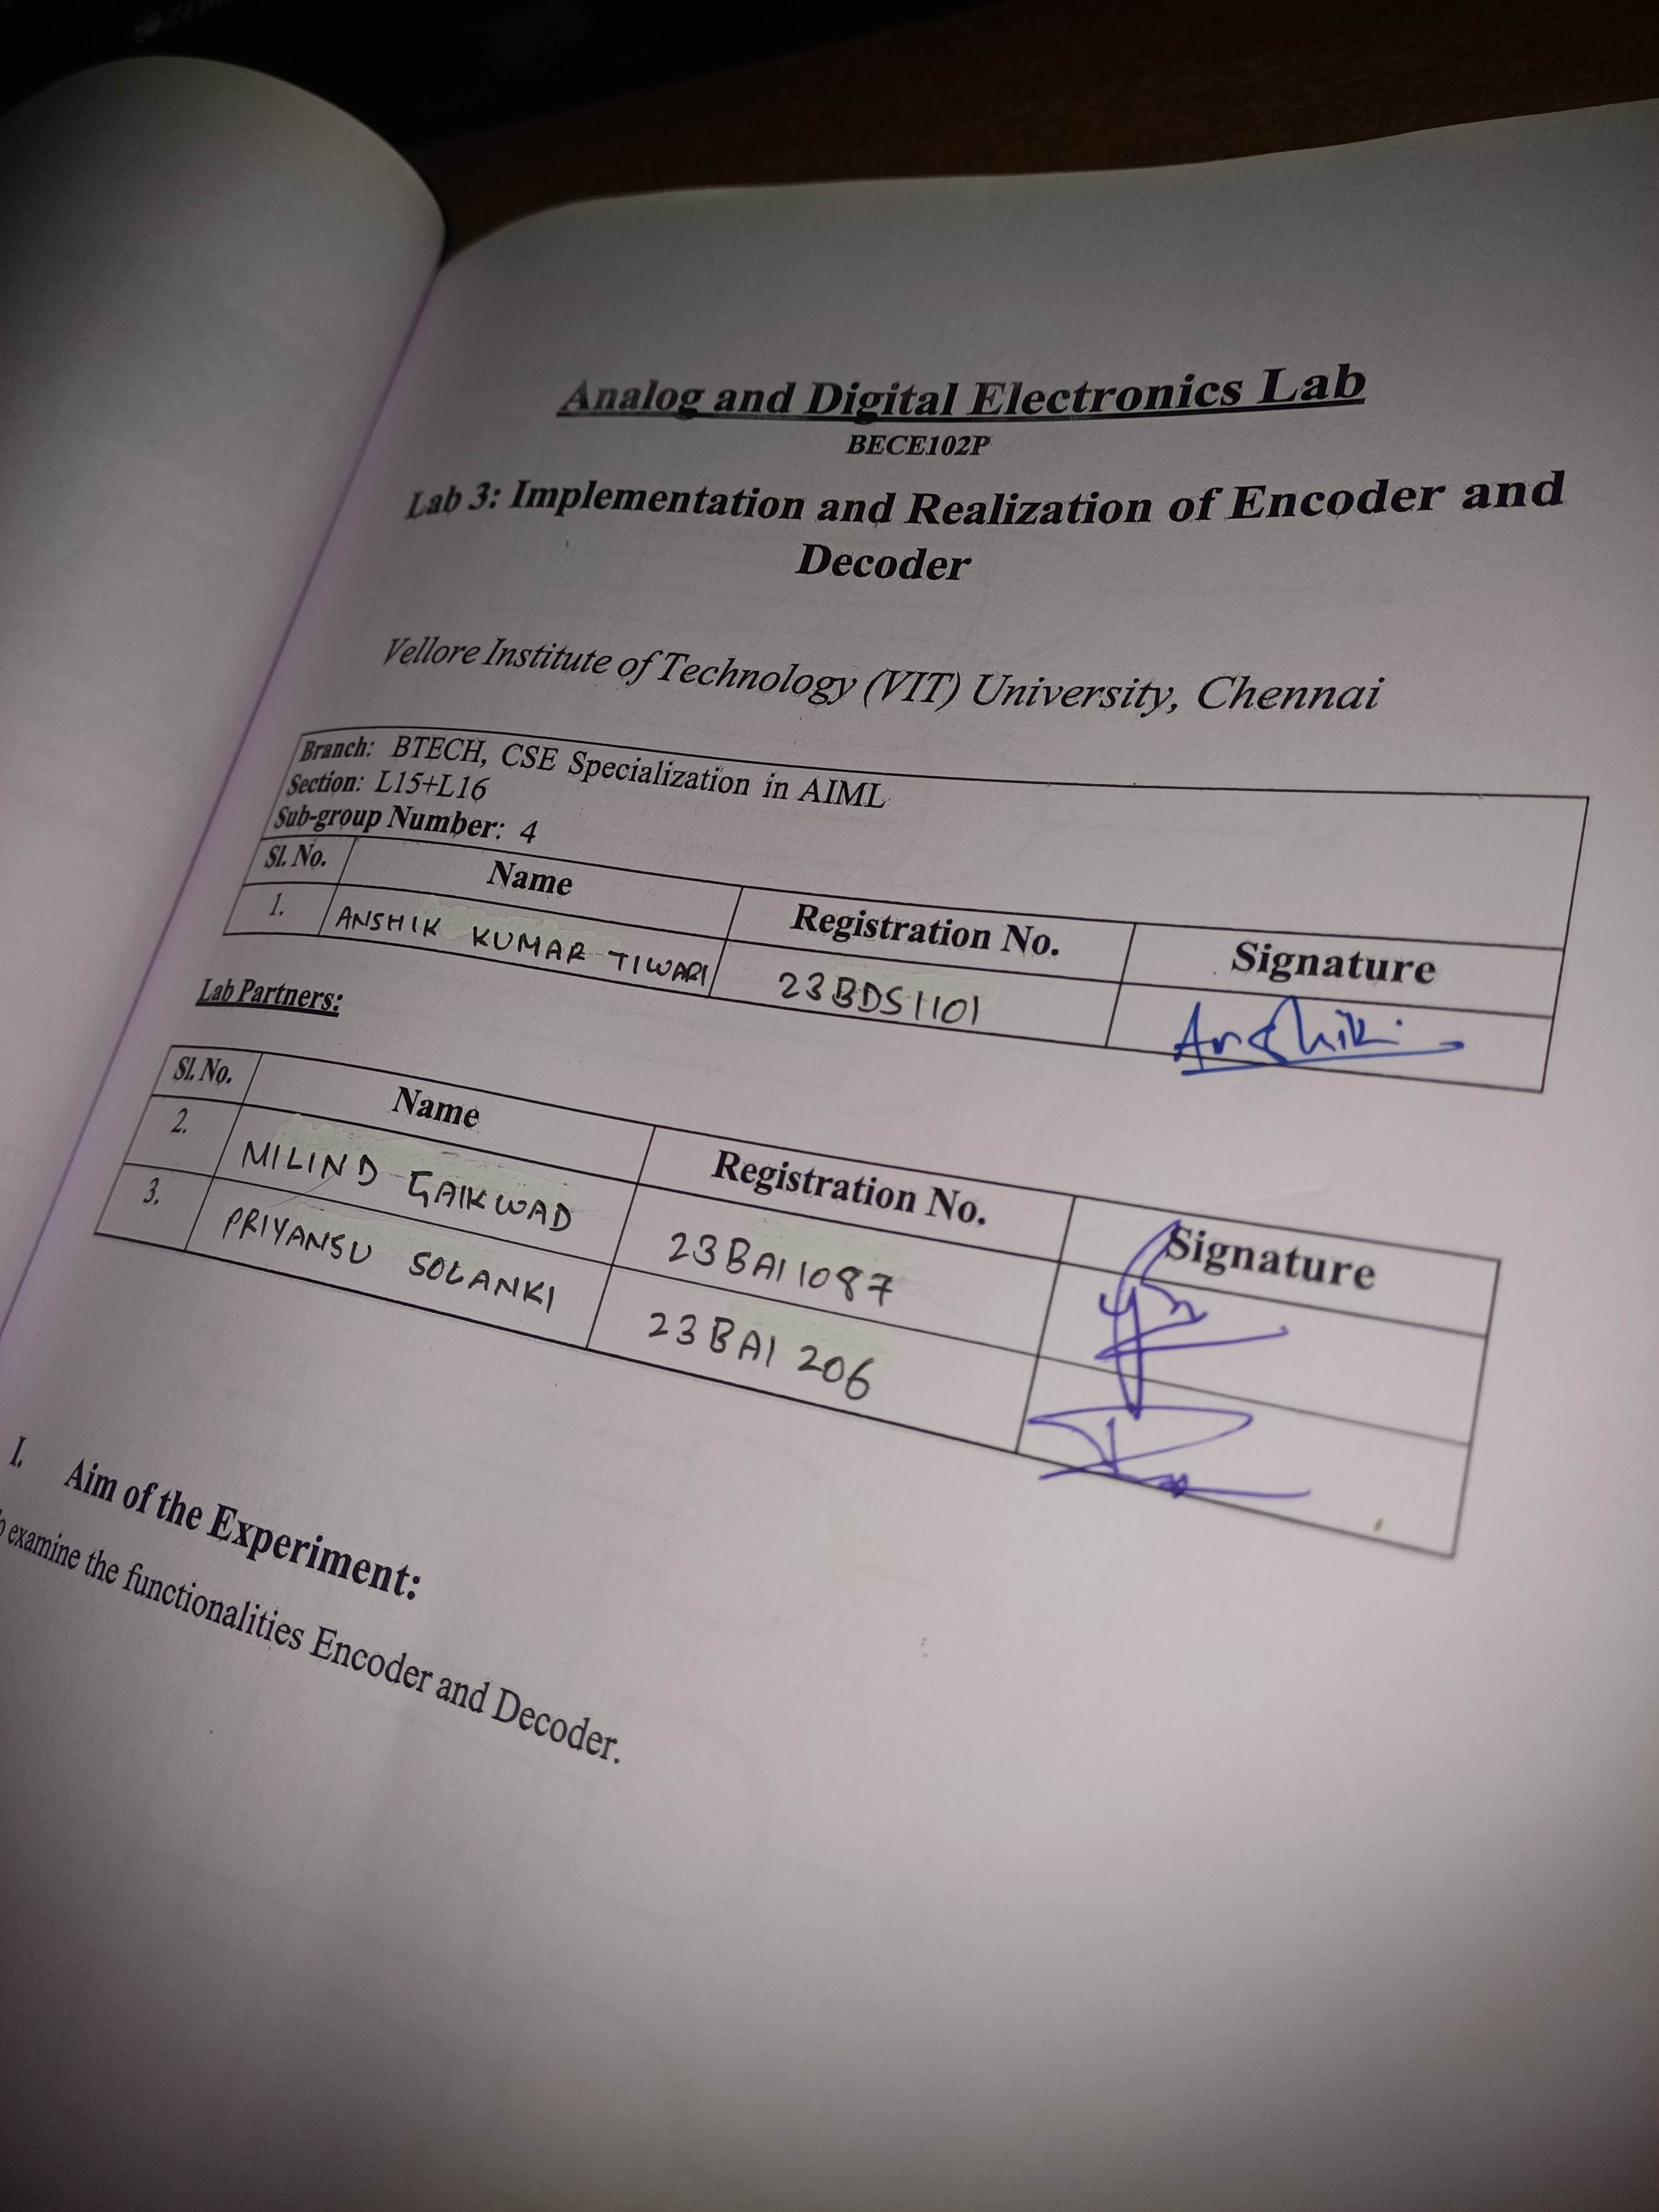 Analog and Digital Electronics Lab
BECE102P
Lab 3: Implementation and Realization of Encoder and
Decoder
Vellore Institute of Technology (VIT) University, Chennai
Branch: BTECH, CSE Specialization in AIML
Section: L15+L16
Sub-group Number: 4
Sl. No. Name Registration No. Signature
1. ANSHIK KUMAR TIWARI 23BDS1101 Anshik
Lab Partners:
Sl. No. Name Registration No. Signature
2. MILIND GAIKWAD 23BAI1087
3. PRIYANSU SOLANKI 23BAI 206
I. Aim of the Experiment:
examine the functionalities Encoder and Decoder.